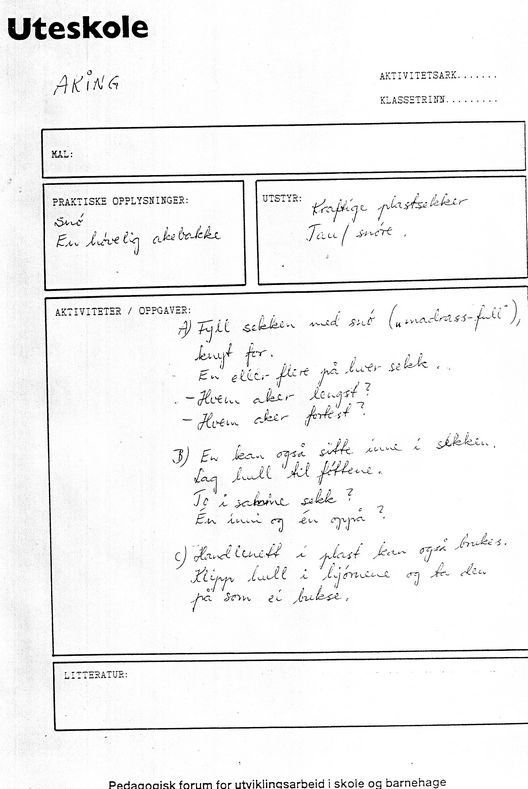 Uteskole
AKING
AKTIVITETSARK.......
KLASSETRINN.........
MAL:
PRAKTISKE OPPLYSNINGER:
Snö
En høvelig akebakke
UTSTYR:
Kraftige plastsekker
Tau/ snøre.
AKTIVITETER / OPPGAVER:
A) Fyll sekken med snö („madrass-full"),
knyt for.
En eller flere på hver sekk..
- Hvem aker lengst?
- Hvem aker fortest?
B) En kan også sitte inne i sekken.
Lag hull til föttene.
To i samme sekk?
Én inni og én oppå?
C) Handlenett i plast kan også brukes.
Klipp hull i hjørnene og ta den
på som ei bukse.
LITTERATUR:
Pedagogisk forum for utviklingsarbeid i skole og barnehage